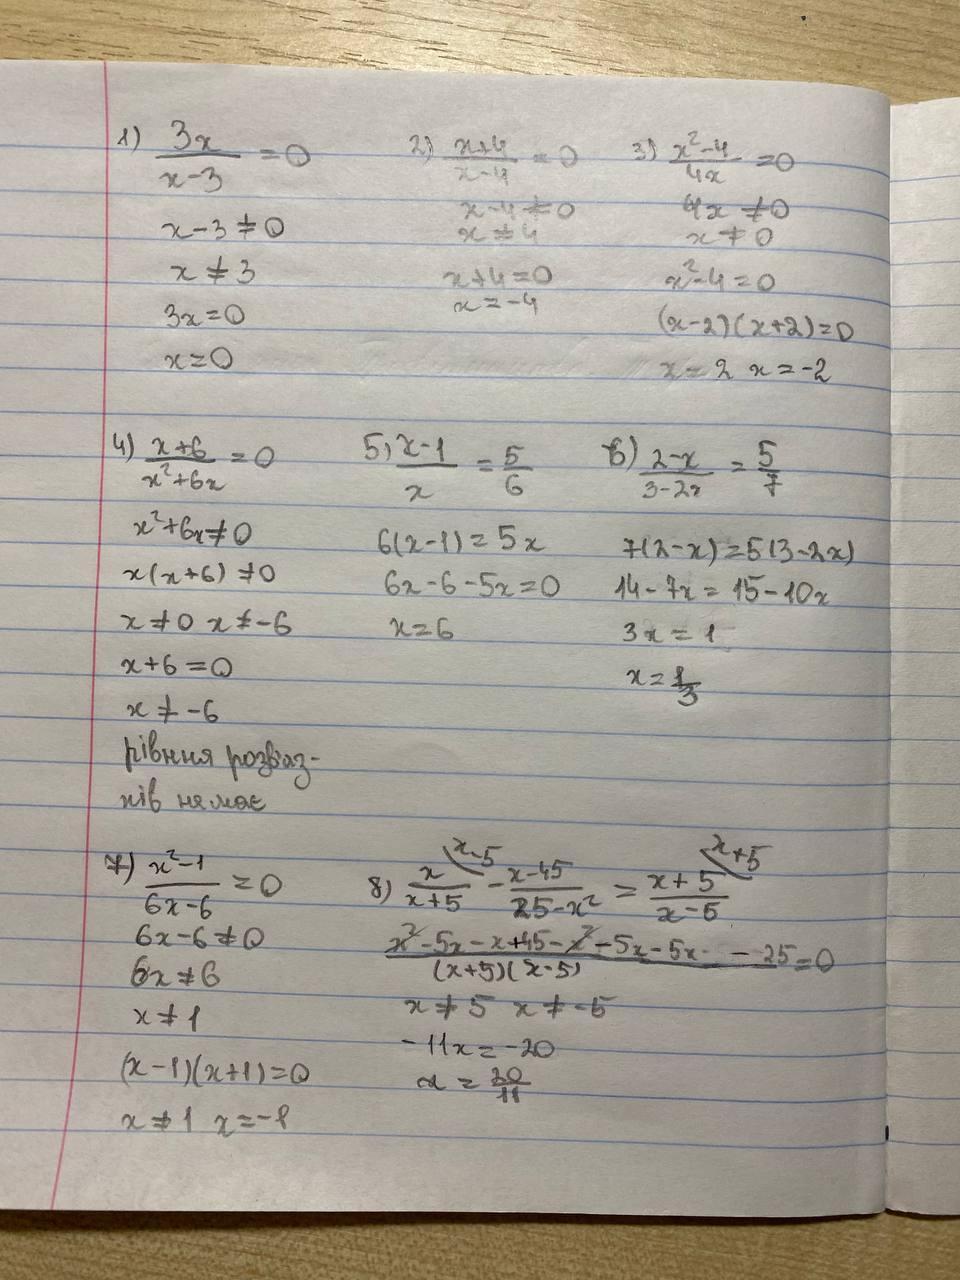 1) 3x/(x-3) = 0
x-3 ≠ 0
x ≠ 3
3x = 0
x = 0
2) (x+4)/(x-4) = 0
x-4 ≠ 0
x ≠ 4
x+4 = 0
x = -4
3) (x²-4)/(4x) = 0
4x ≠ 0
x ≠ 0
x²-4 = 0
(x-2)(x+2) = 0
x = 2 x = -2
4) (x+6)/(x²+6x) = 0
x²+6x ≠ 0
x(x+6) ≠ 0
x ≠ 0 x ≠ -6
x+6 = 0
x ≠ -6
рівння розв'яз-
ків немає
5) (x-1)/x = 5/6
6(x-1) = 5x
6x-6-5x = 0
x = 6
6) (2-x)/(3-2x) = 5/7
7(2-x) = 5(3-2x)
14-7x = 15-10x
3x = 1
x = 1/3
7) (x²-1)/(6x-6) = 0
6x-6 ≠ 0
6x ≠ 6
x ≠ 1
(x-1)(x+1) = 0
x ≠ 1 x = -1
x-5 x+5
8) x/(x+5) - (x-45)/(25-x²) = (x+5)/(x-5)
(x²-5x-x+45-x²-5x-5x--25)/((x+5)(x-5)) = 0
x ≠ 5 x ≠ -5
-11x = -20
x = 20/11